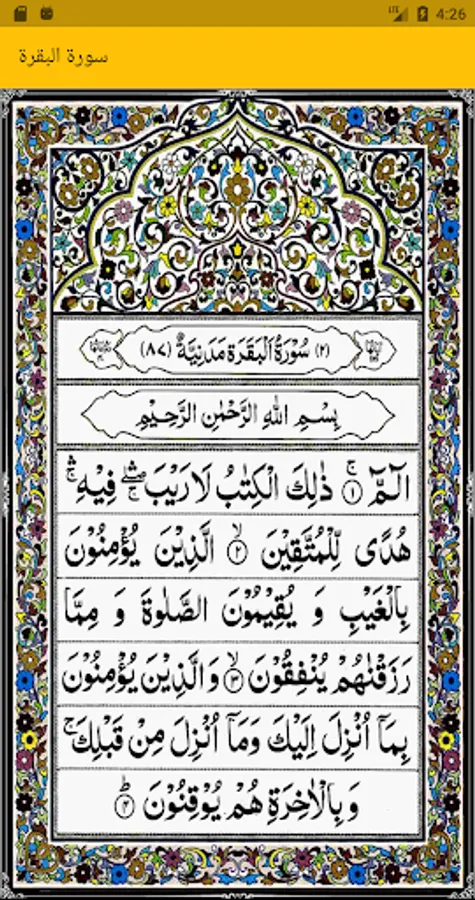 4:26
سورة البقرة
(٢) سُوْرَةُ الْبَقَرَةِ مَدَنِيَّةٌ (٨٧)
بِسْمِ اللّٰهِ الرَّحْمٰنِ الرَّحِيْمِ
الٓمّٓ ۚ ﴿١﴾ ذٰلِكَ الْكِتٰبُ لَا رَيْبَ ۛ فِيْهِ ۛ
هُدًى لِّلْمُتَّقِيْنَ ۙ ﴿٢﴾ الَّذِيْنَ يُؤْمِنُوْنَ
بِالْغَيْبِ وَ يُقِيْمُوْنَ الصَّلٰوةَ وَ مِمَّا
رَزَقْنٰهُمْ يُنْفِقُوْنَ ۙ ﴿٣﴾ وَالَّذِيْنَ يُؤْمِنُوْنَ
بِمَآ اُنْزِلَ اِلَيْكَ وَمَآ اُنْزِلَ مِنْ قَبْلِكَ ۚ
وَ بِالْاٰخِرَةِ هُمْ يُوْقِنُوْنَ ؕ ﴿٤﴾